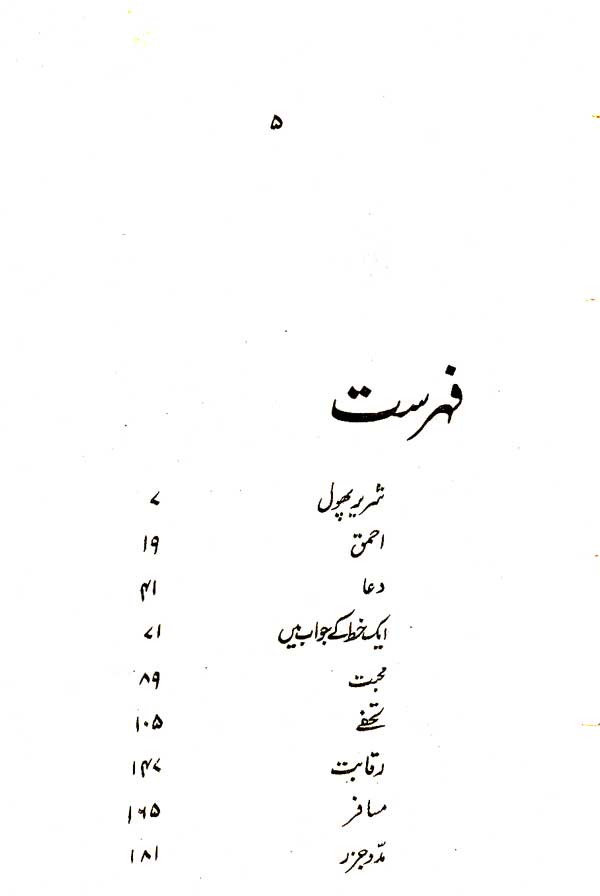 ۵
فہرست
شریر پھول ۷
احمق ۱۹
دعا ۴۱
ایک خط کے جواب میں ۷۱
محبت ۸۹
تحفے ۱۰۵
رقابت ۱۴۷
مسافر ۱۶۵
مدّوجزر ۱۸۱